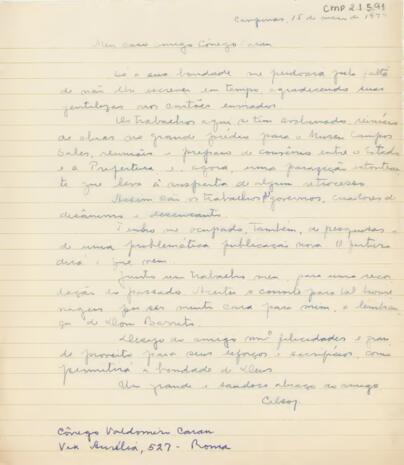 CMP 2.1.5.91
Campinas, 15 de maio de 197
Meu caro amigo Cônego Caran
Só a sua bondade me perdoará pela falta
de não lhe escrever em tempo, agradecendo suas
gentilezas nos cartões enviados.
Os trabalhos aqui se têm avolumado, reinício
de obras no grande prédio para o Museu Campos
Sales, reuniões e preparo de convênio entre o Estado
e a Prefeitura e, agora, uma paralização
te que leva à suspeita de algum retrocesso.
Assim são os trabalhos governos, criadores de
desânimo e desencanto.
Tenho me ocupado, também, de pesquisas e
de uma problemática publicação nova. O futuro
dirá o que vem.
Junto um trabalho meu, para uma recor
dação do passado. Aceitei o convite para tal home
nagem por ser muito cara para mim, a lembran
ça de Dom Barreto.
Desejo ao amigo felicidades e gran
de proveito para seus esforços e sacrifícios, como
permitirá a bondade de Deus.
Um grande e saudoso abraço do amigo
Celso
Cônego Valdomiro Caran
Via Aurélia, 527 - Roma